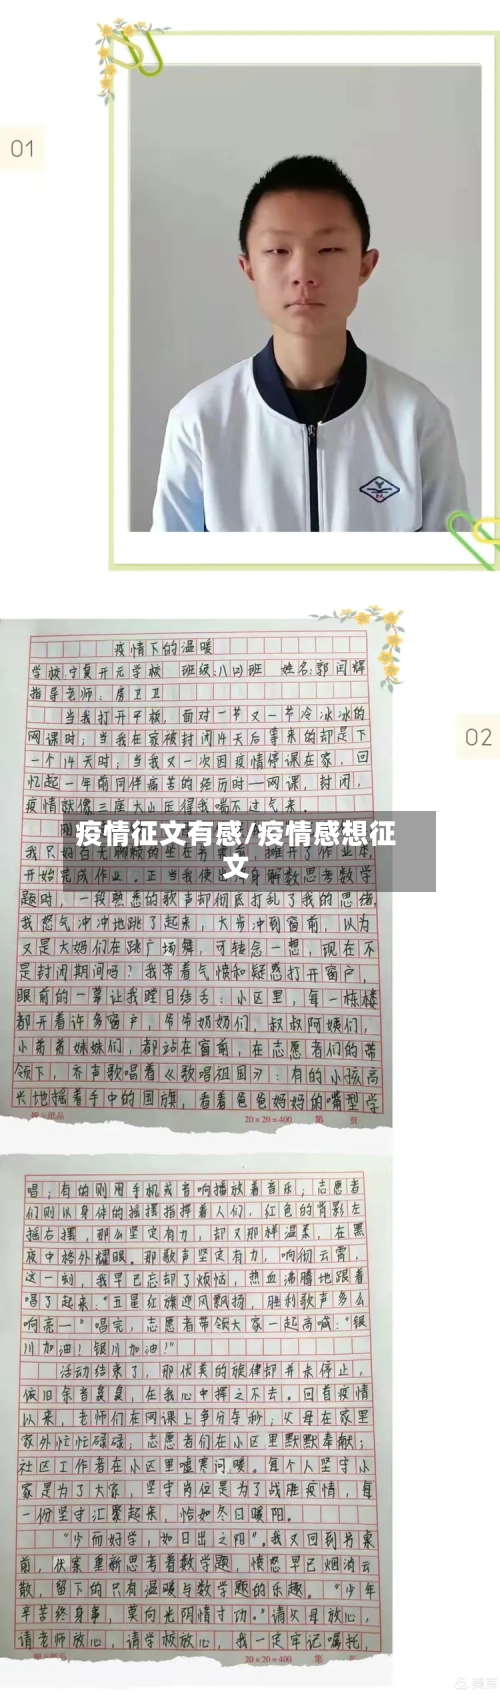 01
疫情下的温暖
学校:宁夏开元学校 班级:八(2)班 姓名:郭闰辉
指导老师:房卫卫
02
当我打开平板，面对一节又一节冷冰冰的
网课时；当我在家被封闭14天后等来的却是下
一个14天时；当我又一次因疫情停课在家，回
忆起一年前同伴痛苦的经历时——网课，封闭，
疫情就像三座大山压得我喘不过气来。
疫情征文有感/疫情感想征
文
我只好百无聊赖的坐在书桌前，摊开了作业本，
开始完成作业。正当我使出浑身解数思考数学
题时，一段熟悉的歌声却彻底打乱了我的思绪，
我怒气冲冲地跳了起来，大步冲到窗前，以为
又是大妈们在跳广场舞，可转念一想，现在不
是封闭期间吗？我带着气愤和疑惑打开窗户，
眼前的一幕让我瞠目结舌：小区里，每一栋楼
都开着许多窗户，爷爷奶奶们，叔叔阿姨们，
小弟弟妹妹们，都站在窗前，在志愿者们的带
领下，齐声歌唱着《歌唱祖国》：有的小孩高
长地摇着手中的国旗，看着爸爸妈妈的嘴型学
20×20=400 第 页
唱；有的则用手机或音响播放着音乐；志愿者
们则以身体的摇摆指挥着人们，红色的背影左
摇右摆，那么坚定有力，却又那样温柔，在黑
夜中格外耀眼。那歌声坚定有力，响彻云霄，
这一刻，我早已忘却了烦恼，热血沸腾地跟着
唱了起来：“五星红旗迎风飘扬，胜利歌声多么
响亮——”唱完，志愿者带领大家一起高喊：“银
川加油！银川加油！”
活动结束了，那优美的旋律却并未停止，
依旧余音袅袅，在我心中挥之不去。回首疫情
以来，老师们在网课上争分夺秒；父母在家里
家外忙忙碌碌；志愿者们在小区里默默奉献；
社区工作者在小区里嘘寒问暖。每个人坚守小
家是为了大家，坚守岗位是为了战胜疫情，每
一份坚守汇聚起来，恰如冬日暖阳。
“少而好学，如日出之阳”。我又回到书桌
前，伏案重新思考着数学题，愤怒早已烟消云
散，留下的只有温暖与数学题的乐趣。“少年
辛苦终身事，莫向光阴惰寸功。”请父母放心，
请老师放心，请学校放心，我一定牢记嘱托，
20×20=400 第 页
美篇